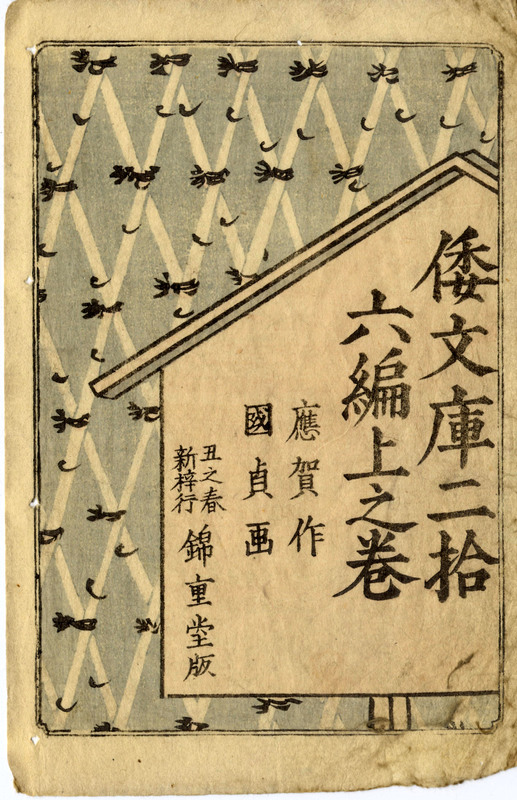 倭文庫二拾
六編上之巻
應賀作
國貞画
丑之春
新梓行
錦重堂版